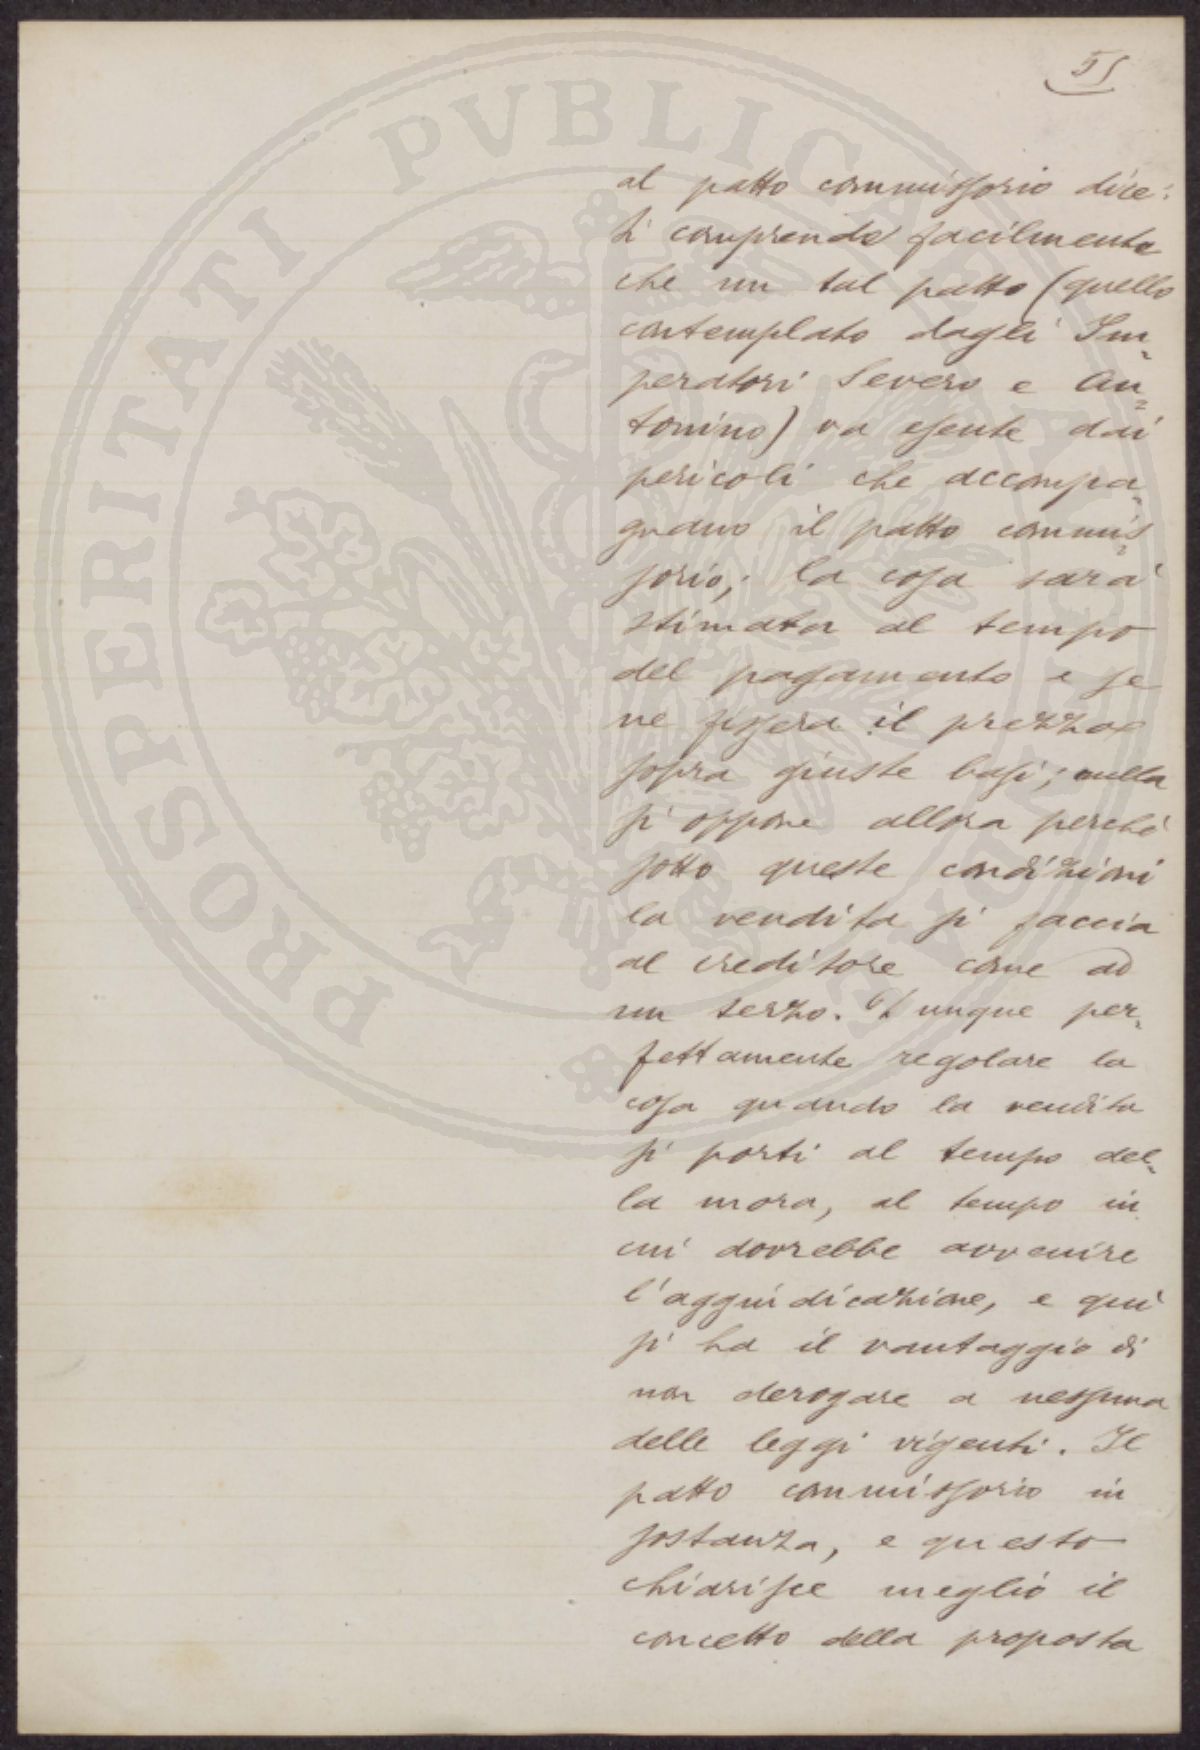 51
al patto commissorio dice:
Si comprende facilmente
che un tal patto (quello
contemplato dagli Im-
peratori Severo e An-
tonino) va esente dai
pericoli che accompa-
gnano il patto commis-
sorio; la cosa sarà
stimata al tempo
del pagamento e se
ne fisserà il prezzo
sopra giuste basi; nulla
si oppone allora perché
sotto queste condizioni
la vendita si faccia
al creditore come ad
un terzo. Dunque per-
fettamente regolare la
cosa quando la vendita
si porti al tempo del-
la mora, al tempo in
cui dovrebbe avvenire
l'aggiudicazione, e qui
si ha il vantaggio di
non derogare a nessuna
delle leggi vigenti. Il
patto commissorio in
sostanza, e questo
chiarisce meglio il
concetto della proposta
PROSPERITATI PVBLICAE AVGENDAE